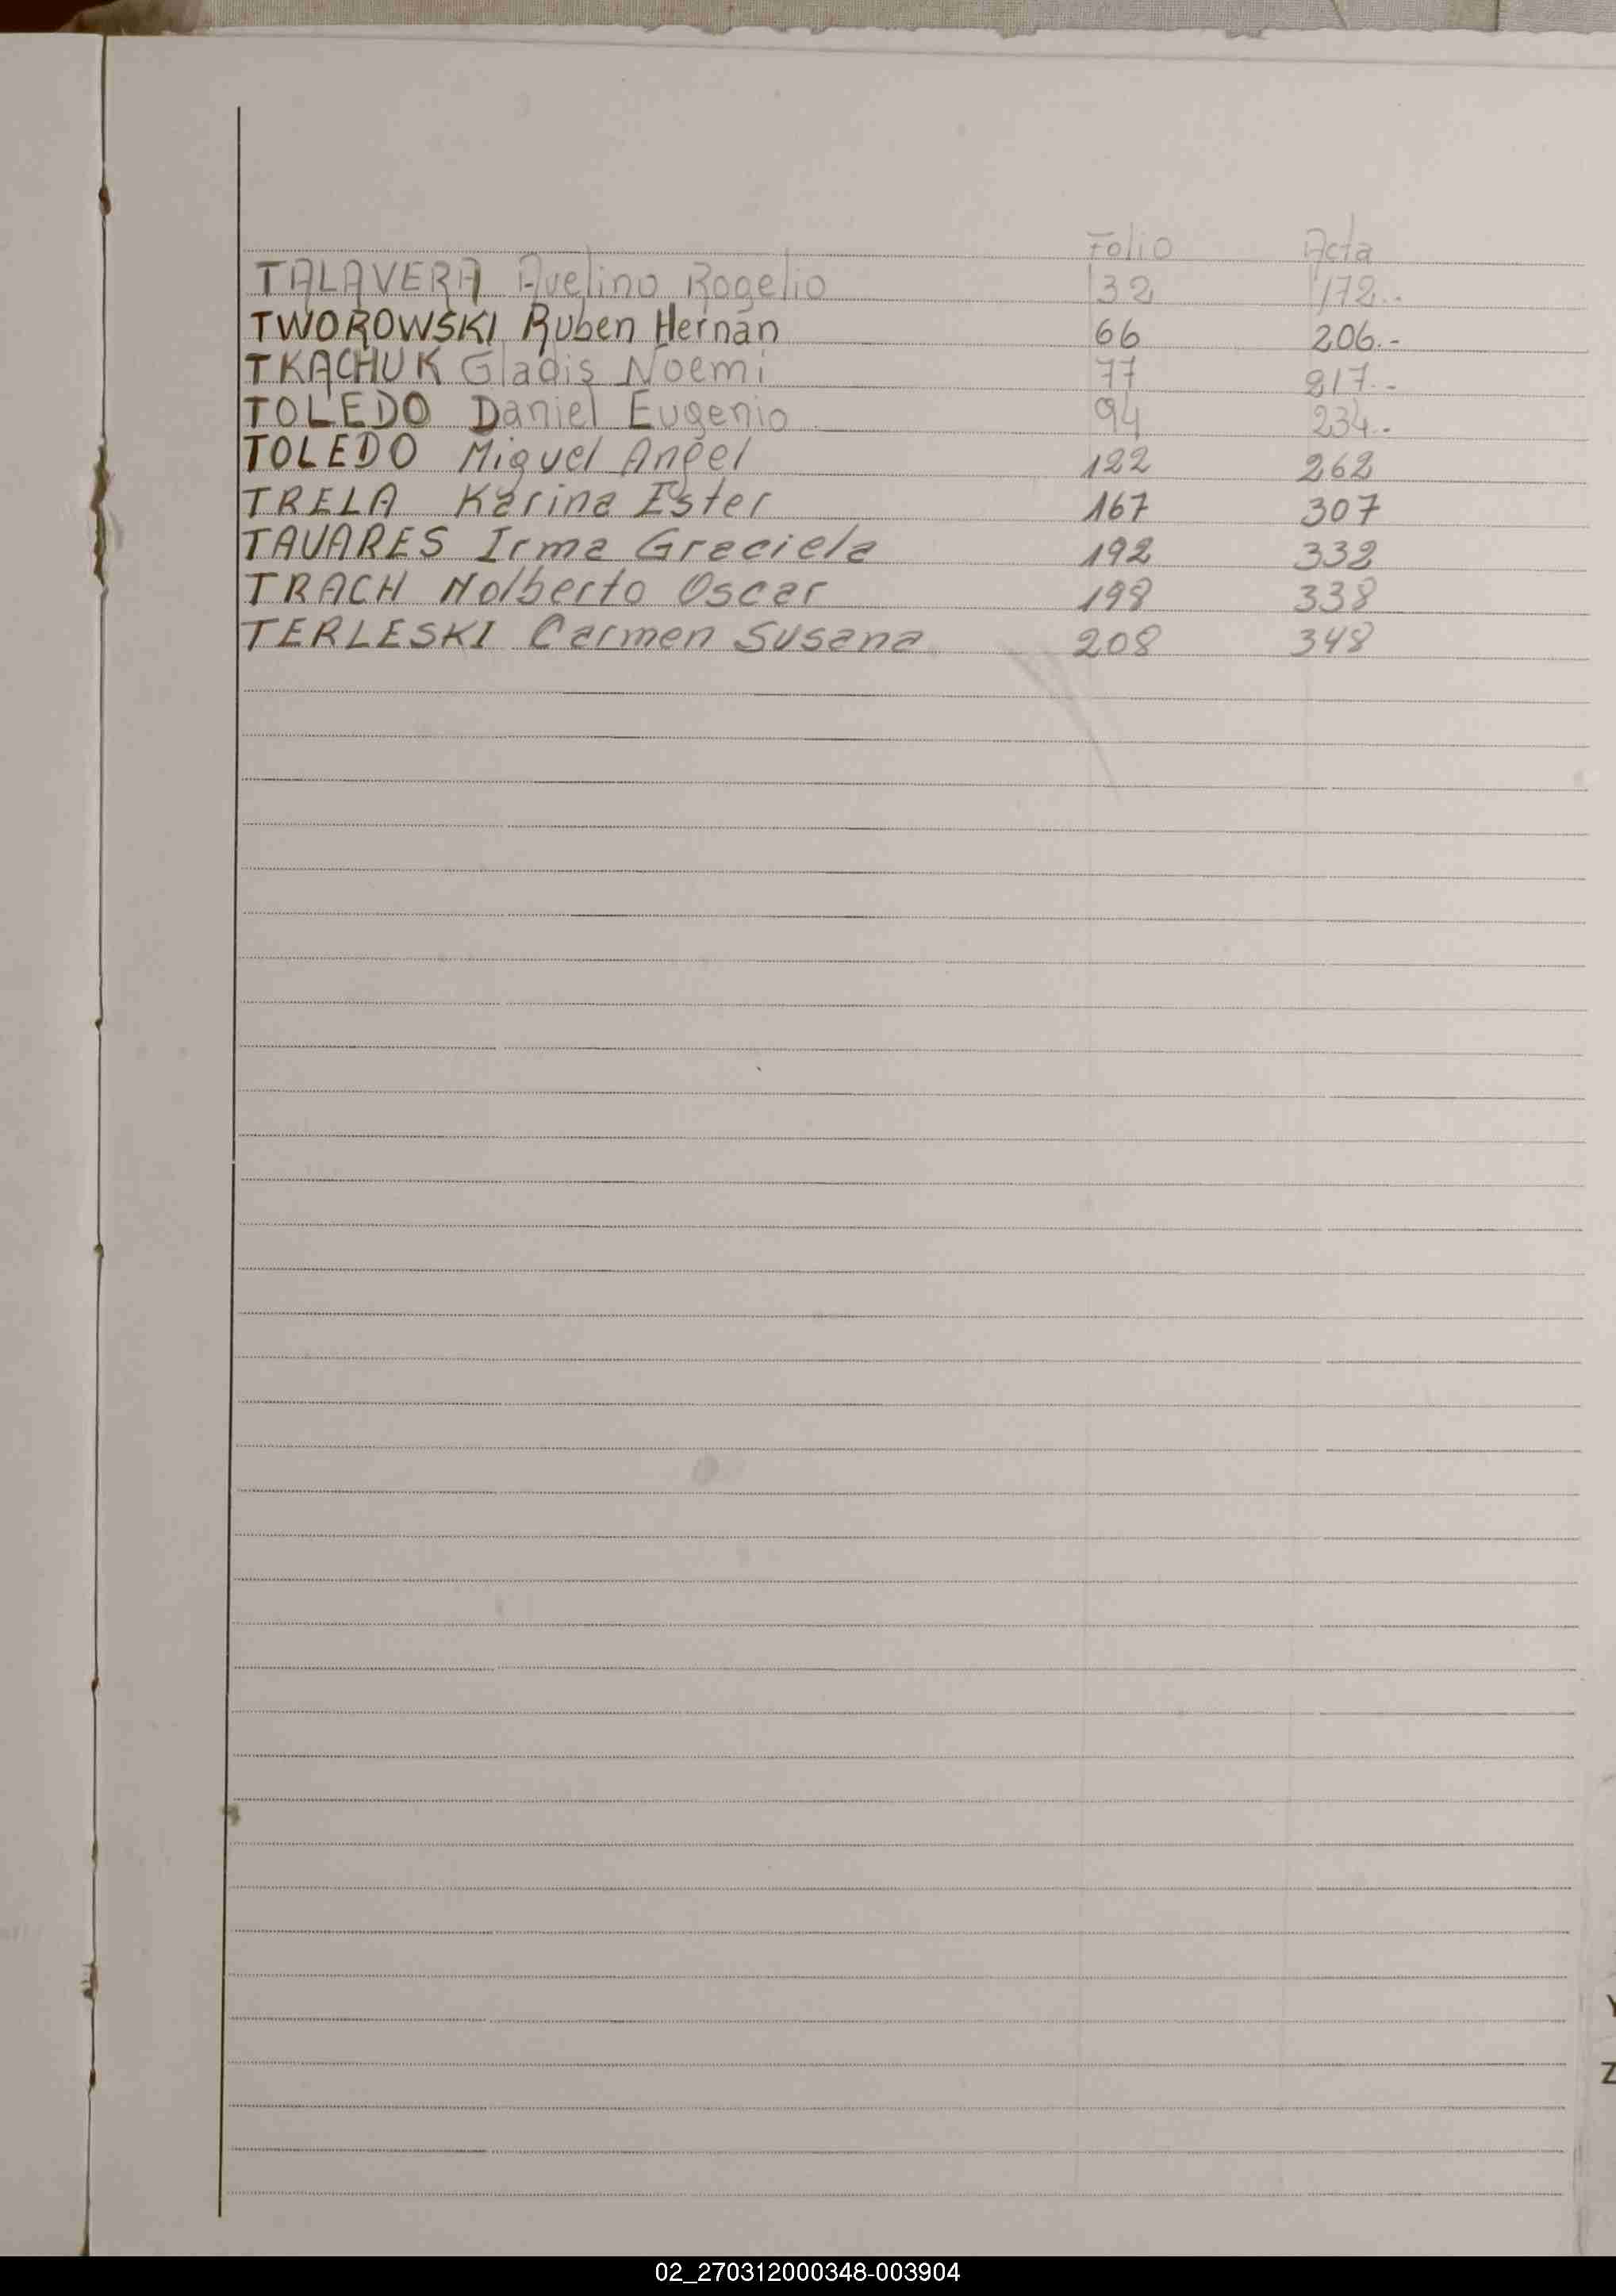 Folio Acta
TALAVERA Avelino Rogelio 32 172.-
TWOROWSKI Ruben Hernán 66 206.-
TKACHUK Gladis Noemi 77 217.-
TOLEDO Daniel Eugenio 94 234.-
TOLEDO Miguel Angel 122 262
TRELA Karina Ester 167 307
TAVARES Irma Graciela 192 332
TRACH Nolberto Oscar 198 338
TERLESKI Carmen Susana 208 348
Y
Z
02_270312000348-003904